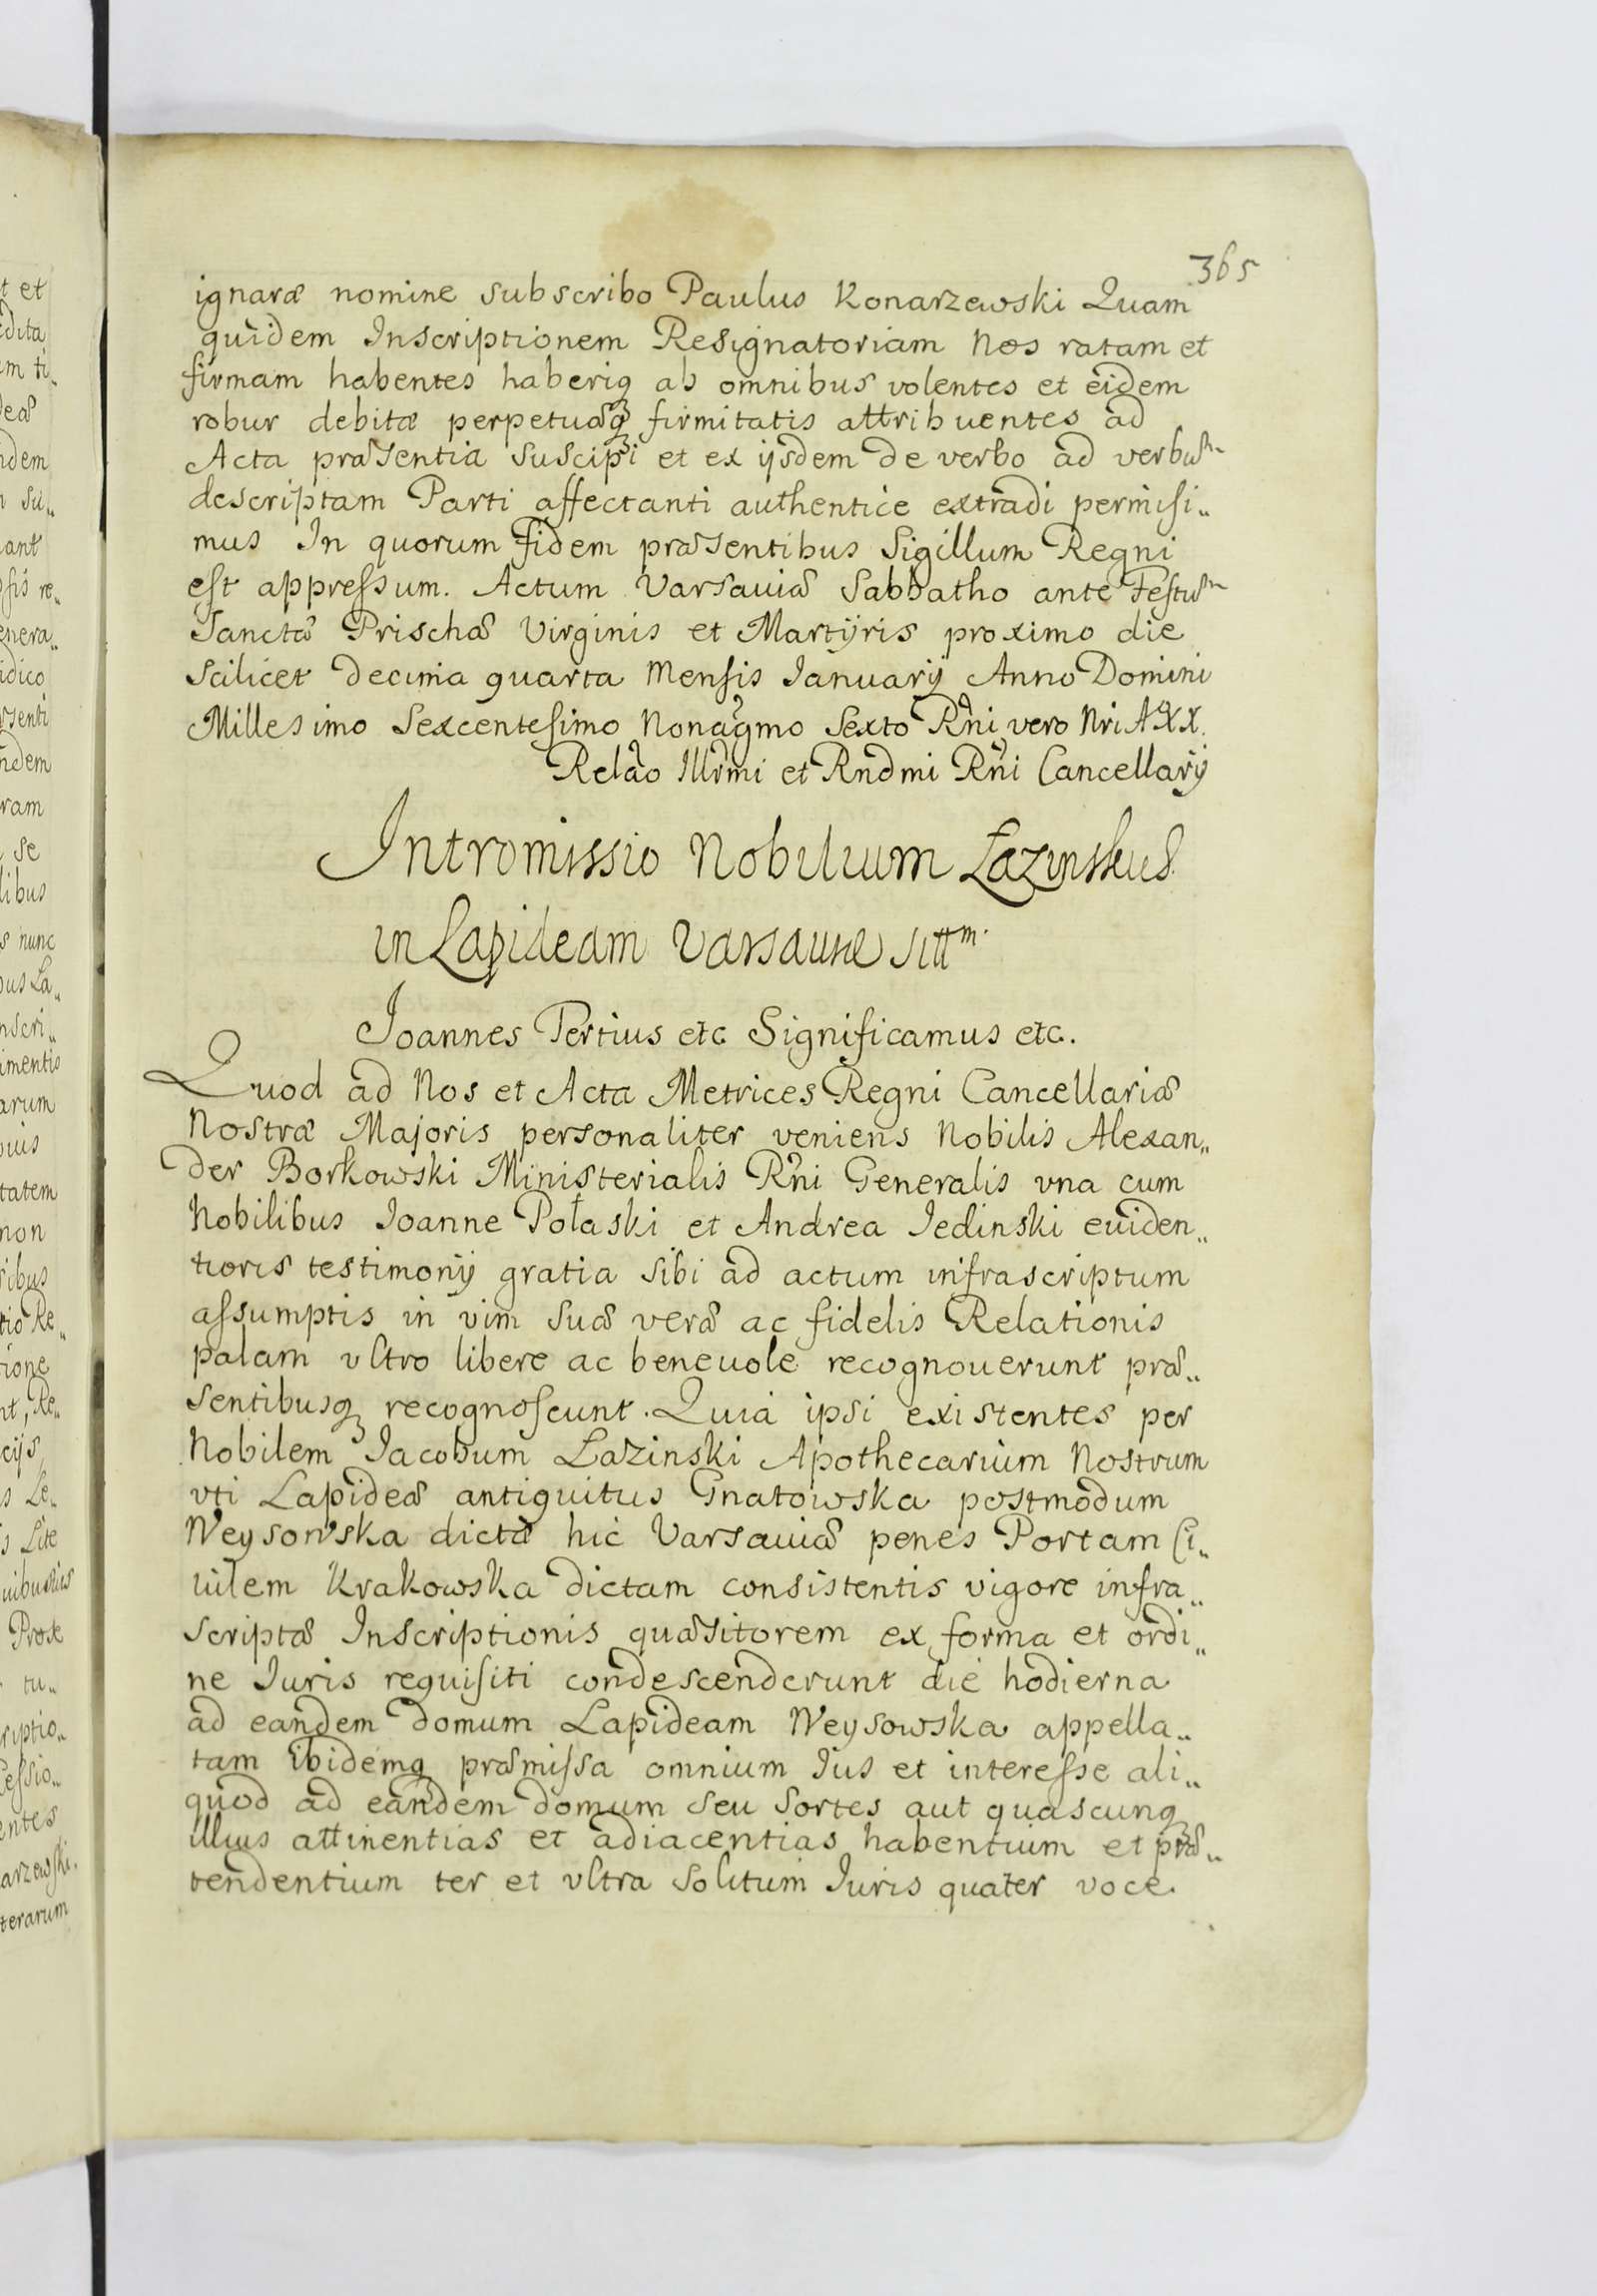 365
ignaræ nomine subscribo Paulus Konarzewski Quam
quidem Inscriptionem Resignatoriam Nos ratam et
firmam habentes haberiq ab omnibus volentes et eidem
robur debitæ perpetuæq firmitatis attribuentes ad
Acta præsentia suscipi et ex ijsdem de verbo ad verbum
descriptam Parti affectanti authentice extradi permisi„
mus In quorum fidem præsentibus Sigillum Regni
est appressum. Actum Varsaviæ Sabbatho ante Festum
Sanctæ Prischæ Virginis et Martyris proximo die
scilicet decima quarta Mensis Ianuarij Anno Domini
Millesimo Sexcentesimo Nonagmo Sexto Rni vero Nri AXX.
Relao Illrmi et Rndmi Rni Cancellarij
Intromissio Nobilium
in Lapideam Varsaviæ sittm.
Joannes Tertius etc Significamus etc.
Quod ad Nos et Acta Metrices Regni Cancellariæ
Nostræ Majoris personaliter veniens Nobilis Alexan„
der Borkowski Ministerialis Rni Generalis vna cum
Nobilibus Joanne Połaski et Andrea Jedinski euiden„
tioris testimonij gratia sibi ad actum infrascriptum
assumptis in vim suæ veræ ac fidelis Relationis
palam vltro libere ac beneuole recognouerunt præ„
sentibusq recognoscunt. Quia ipsi existentes per
Nobilem Jacobum Łazinski Apothecarium Nostrum
vti Lapideæ antiquitus Gnatowska postmodum
Weysowska dictæ hic Varsaviæ penes Portam Ci„
uilem Krakowska dictam consistentis vigore infra„
scriptæ Inscriptionis quæsitorem ex forma et ordi„
ne Iuris requisiti condescenderunt die hodierna
ad eandem domum Lapideam Weysowska appella„
tam ibidemq præmissa omnium Ius et interesse ali„
quod ad eandem domum seu Sortes aut quascunq
illius attinentias et adiacentias habentium et præ„
tendentium ter et vltra solitum Juris quater voce